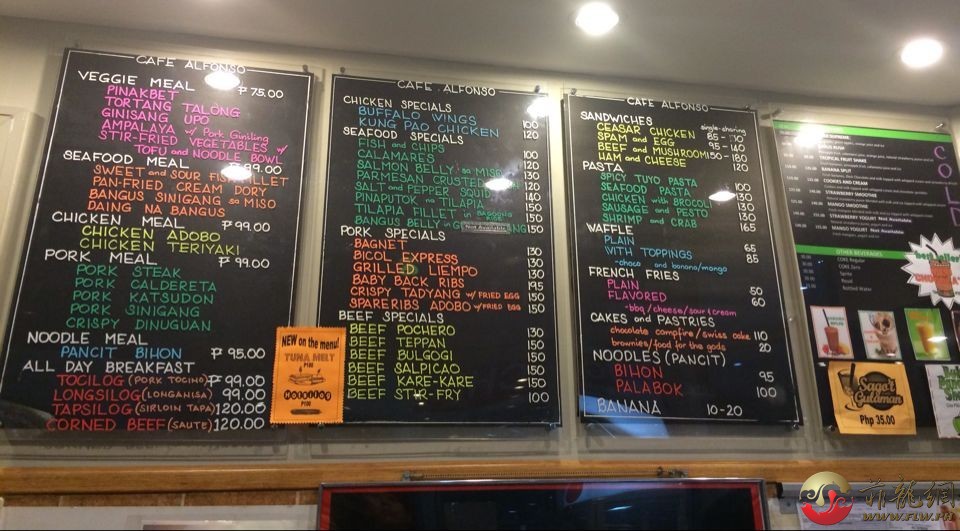 CAFE ALFONSO
VEGGIE MEAL ₱ 75.00
PINAKBET
TORTANG TALONG
GINISANG UPO
AMPALAYA w/ Pork Giniling
STIR-FRIED VEGETABLES w/
TOFU and NOODLE BOWL
SEAFOOD MEAL ₱ 99.00
SWEET and SOUR FISH FILLET
PAN-FRIED CREAM DORY
BANGUS SINIGANG sa MISO
DAING NA BANGUS
CHICKEN MEAL ₱ 99.00
CHICKEN ADOBO
CHICKEN TERIYAKI
PORK MEAL ₱ 99.00
PORK STEAK
PORK CALDERETA
PORK KATSUDON
PORK SINIGANG
CRISPY DINUGUAN
NOODLE MEAL
PANCIT BIHON ₱ 95.00
ALL DAY BREAKFAST
TOCILOG (PORK TOCINO) ₱ 99.00
LONGSILOG (LONGANISA) 99.00
TAPSILOG (SIRLOIN TAPA) 120.00
CORNED BEEF (SAUTE) 120.00
NEW on the menu!
TUNA MELT
₱100
Hotsilog
₱100
CAFE ALFONSO
CHICKEN SPECIALS
BUFFALO WINGS 100
KUNG PAO CHICKEN 120
SEAFOOD SPECIALS
FISH and CHIPS
CALAMARES
SALMON BELLY sa MISO
PARMESAN CRUSTED
SALT and PEPPER SQUID
PINAPUTOK na TILAPIA
TILAPIA FILLET in BAGOONG RICE
BANGUS BELLY in Not Available 150
PORK SPECIALS
BAGNET 130
BICOL EXPRESS 130
GRILLED LIEMPO 130
BABY BACK RIBS 195
CRISPY TADYANG w/ FRIED EGG 150
SPARERIBS ADOBO w/ FRIED EGG 150
BEEF SPECIALS
BEEF POCHERO 130
BEEF TEPPAN 150
BEEF BULGOGI 150
BEEF SALPICAO 150
BEEF KARE-KARE 150
BEEF STIR-FRY 100
CAFE ALFONSO
SANDWICHES single-sharing
CEASAR CHICKEN 85-110
SPAM and EGG 95-140
BEEF and MUSHROOM 150-180
HAM and CHEESE 120
PASTA
SPICY TUYO PASTA 100
SEAFOOD PASTA
CHICKEN with BROCOLI
SAUSAGE and PESTO 130
SHRIMP and CRAB 165
WAFFLE
PLAIN 65
WITH TOPPINGS 85
-choco and banana/mango
FRENCH FRIES
PLAIN 50
FLAVORED 60
-bbq/cheese/sour cream
CAKES and PASTRIES
chocolate campfire/swiss cake 110
brownies/food for the gods 20
NOODLES (PANCIT)
BIHON 95
PALABOK 100
BANANA 10-20
COLD
TROPICAL FRUIT SHAKE
BANANA SPLIT
COOKIES AND CREAM
STRAWBERRY SMOOTHIE
MANGO SMOOTHIE
STRAWBERRY YOGURT Not Available
MANGO YOGURT
OTHER BEVERAGES
COKE Regular
COKE Zero
Sprite
Royal
Bottled Water
best seller!
Sago't
Gulaman
Php 35.00
菲龍網
WWW.FLW.PH